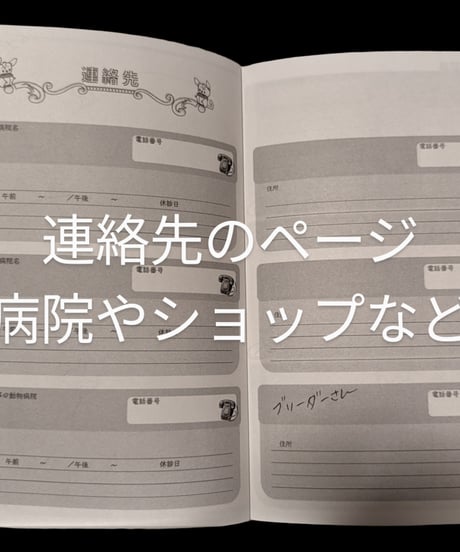 連絡先
病院名
電話番号
午前 ～ /午後 ～ 休診日
病院名
電話番号
午前 ～ /午後 ～ 休診日
動物病院
電話番号
午前 ～ /午後 ～ 休診日
電話番号
住所
電話番号
住所
ブリーダーさん
電話番号
住所
連絡先のページ
病院やショップなど